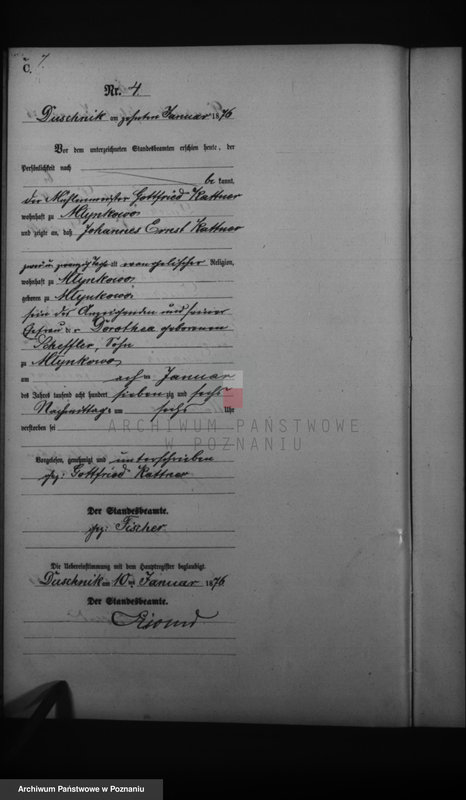 C. 7
Nr. 4
Duschnik am zehnten Januar 1876
Vor dem unterzeichneten Standesbeamten erschien heute, der
Persönlichkeit nach
be kannt,
der Mühlenmeister Gottfried Kattner
wohnhaft zu Mlynkowo
und zeigte an, daß Johannes Ernst Kattner
zwei und zwanzig Tage alt evangelischer Religion,
wohnhaft zu Mlynkowo
geboren zu Mlynkowo
sein des Anzeigenden und seiner
Ehefrau Dorothea geborenen
Scheffler, Sohn
zu Mlynkowo
am ach ten Januar
des Jahres tausend acht hundert sieben zig und sechs
Nachmittags um sechs Uhr
verstorben sei
ARCHIWUM PAŃSTWOWE
W POZNANIU
Vorgelesen, genehmigt und unterschrieben
gez: Gottfried Kattner
Der Standesbeamte.
gez: Fischer
Die Uebereinstimmung mit dem Hauptregister beglaubigt.
Duschnik am 10 ten Januar 1876
Der Standesbeamte.
Archiwum Państwowe w Poznaniu